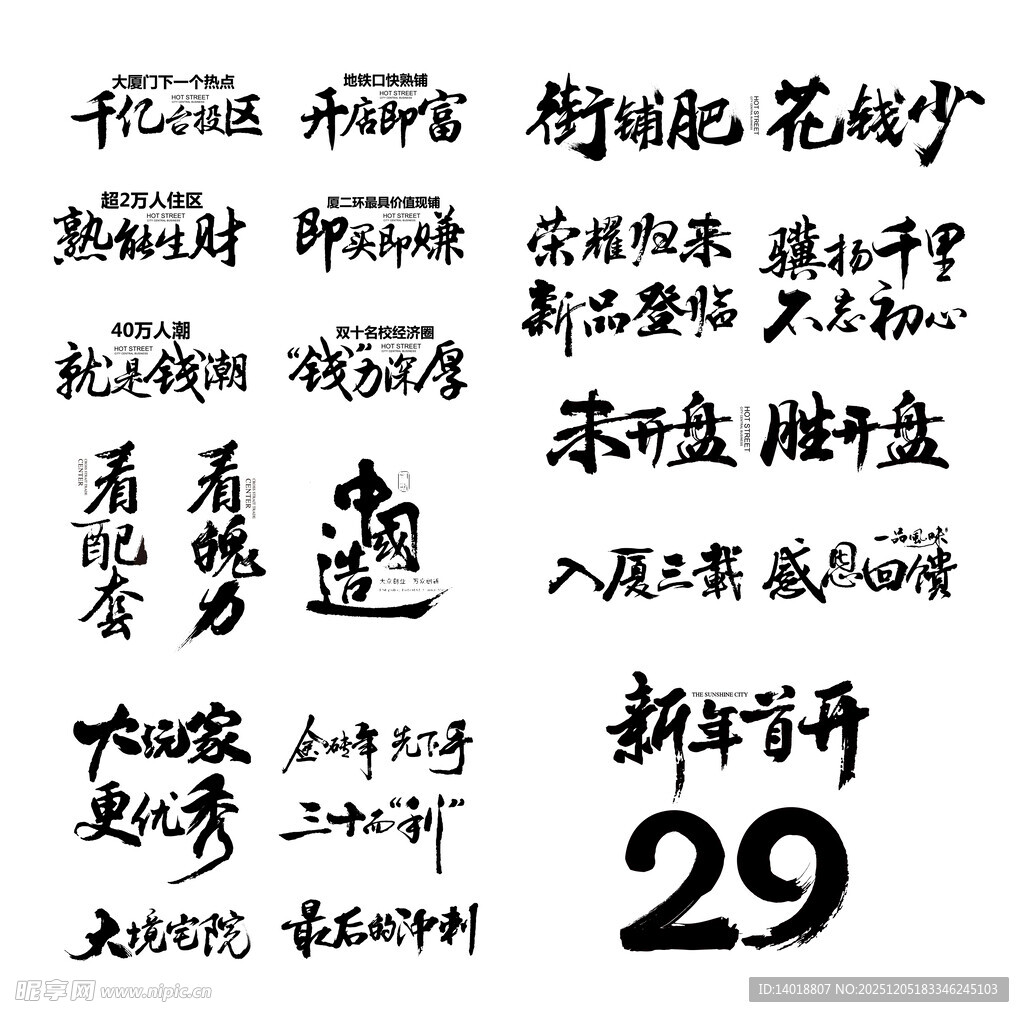 大厦门下一个热点
HOT STREET
CITY CENTRAL BUSINESS
千亿台投区
地铁口快熟铺
HOT STREET
CITY CENTRAL BUSINESS
开店即富
街铺肥
HOT STREET
CITY CENTRAL BUSINESS
花钱少
超2万人住区
HOT STREET
CITY CENTRAL BUSINESS
熟能生财
厦二环最具价值现铺
HOT STREET
CITY CENTRAL BUSINESS
即买即赚
荣耀归来
新品登临
骥扬千里
不忘初心
40万人潮
HOT STREET
CITY CENTRAL BUSINESS
就是钱潮
双十名校经济圈
HOT STREET
CITY CENTRAL BUSINESS
“钱”力深厚
未开盘
HOT STREET
CITY CENTRAL BUSINESS
胜开盘
看配套
CROSS STRAIT TRADE
CENTER
看魄力
CROSS STRAIT TRADE
CENTER
中國
造
大众创业 万众创新
入厦三載
感恩回馈
一品風味
大玩家
更优秀
金砖年 先下手
三十而“利”
新年首开
THE SUNSHINE CITY
29
大境宅院
最后的冲刺
昵享网 www.nipic.cn
ID:14018807 NO:20251205183346245103